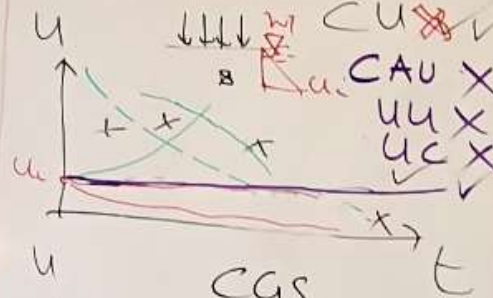 u
CU
CAU X
UU X
UC X
u
CGS
t